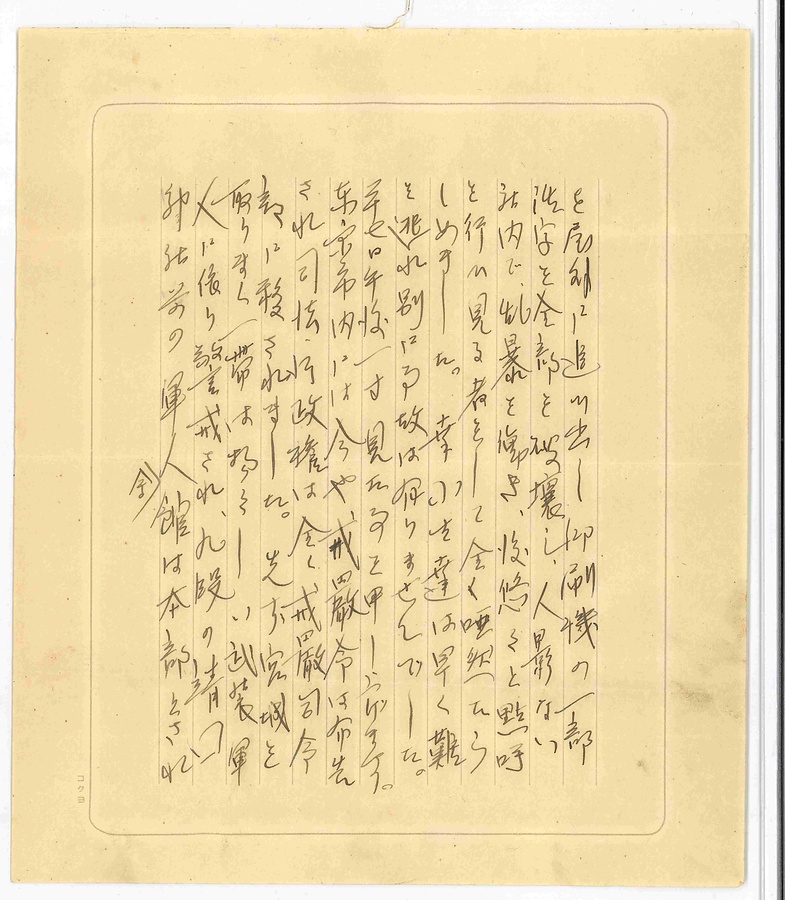 を屋外に追ひ出し印刷機の一部
活字を全部を破壊し、人影ない
社内で乱暴を働き、後悠々と點呼
を行ひ見る者をして全く唖然たら
しめました。幸小生達は早く難
を逃れ別に事故は有りませんでした。
廿七日午後一寸見たる事を申し上げます。
東京市内には今や、戒嚴令は布告
され司法・行政権は全く、戒嚴司令
部に移されました。先づ宮城を
取りまく一帯は物々しい武装軍
人に依り警戒され、九段の靖国
神社前の軍人会館は本部とされ
コクヨ